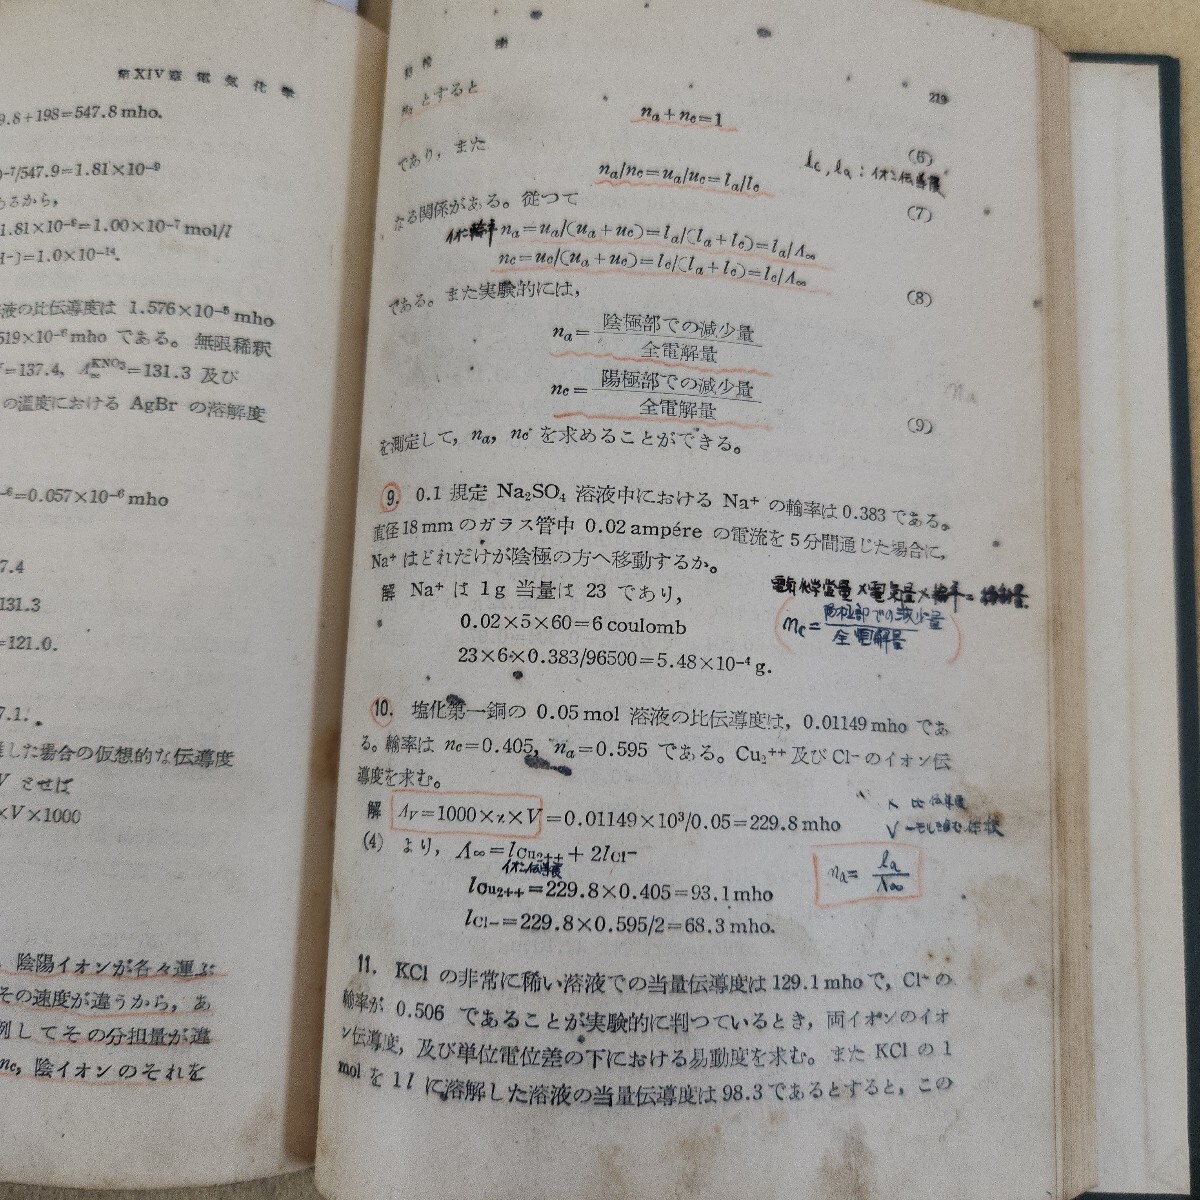 第XIV章 電気化学
9.8+198=547.8 mho.
⁻⁷/547.9=1.81×10⁻⁹
るから,
1.81×10⁻⁶=1.00×10⁻⁷ mol/l
H⁻]=1.0×10⁻¹⁴.
溶液の比伝導度は 1.576×10⁻⁶ mho
519×10⁻⁶ mho である。無限稀釈
=137.4, Λ∞ᴷᴺᴼ³=131.3 及び
の温度における AgBr の溶解度
⁻⁶=0.057×10⁻⁶ mho
7.4
131.3
=121.0.
7.1.
した場合の仮想的な伝導度
V させば
×V×1000
陰陽イオンが各々運ぶ
その速度が違うから, あ
例してその分担量が違
nc, 陰イオンのそれを
219
na とすると
na+nc=1
(6)
であり, また
lc, la : イオン伝導度
na/nc=ua/uc=la/lc
(7)
なる関係がある。従つて
イオン輸率
na=ua/(ua+uc)=la/(la+lc)=la/Λ∞
nc=uc/(ua+uc)=lc/(la+lc)=lc/Λ∞
(8)
である。また実験的には,
na=陰極部での減少量/全電解量
nc=陽極部での減少量/全電解量
na
(9)
を測定して, na, nc を求めることができる。
9. 0.1 規定 Na₂SO₄ 溶液中における Na⁺ の輸率は 0.383 である。
直径 18 mm のガラス管中 0.02 ampére の電流を 5 分間通じた場合に,
Na⁺ はどれだけが陰極の方へ移動するか。
解 Na⁺ は 1 g 当量は 23 であり,
電気化学当量×電気量×輸率=移動量
0.02×5×60=6 coulomb
nc=陽極部での減少量/全電解量
23×6×0.383/96500=5.48×10⁻⁴ g.
10. 塩化第一銅の 0.05 mol 溶液の比伝導度は, 0.01149 mho であ
る。輸率は nc=0.405, na=0.595 である。Cu₂⁺⁺ 及び Cl⁻ のイオン伝
導度を求む。
解 Λv=1000×κ×V=0.01149×10³/0.05=229.8 mho
κ 比伝導度
(4) より, Λ∞=lCu₂⁺⁺+2lCl⁻
イオン伝導度
na=la/Λ∞
lCu₂⁺⁺=229.8×0.405=93.1 mho
lCl⁻=229.8×0.595/2=68.3 mho.
11. KCl の非常に稀い溶液での当量伝導度は 129.1 mho で, Cl⁻ の
輸率が 0.506 であることが実験的に判つているとき, 両イオンのイオ
ン伝導度, 及び単位電位差の下における易動度を求む。また KCl の 1
mol を 1 l に溶解した溶液の当量伝導度は 98.3 であるとすると, この